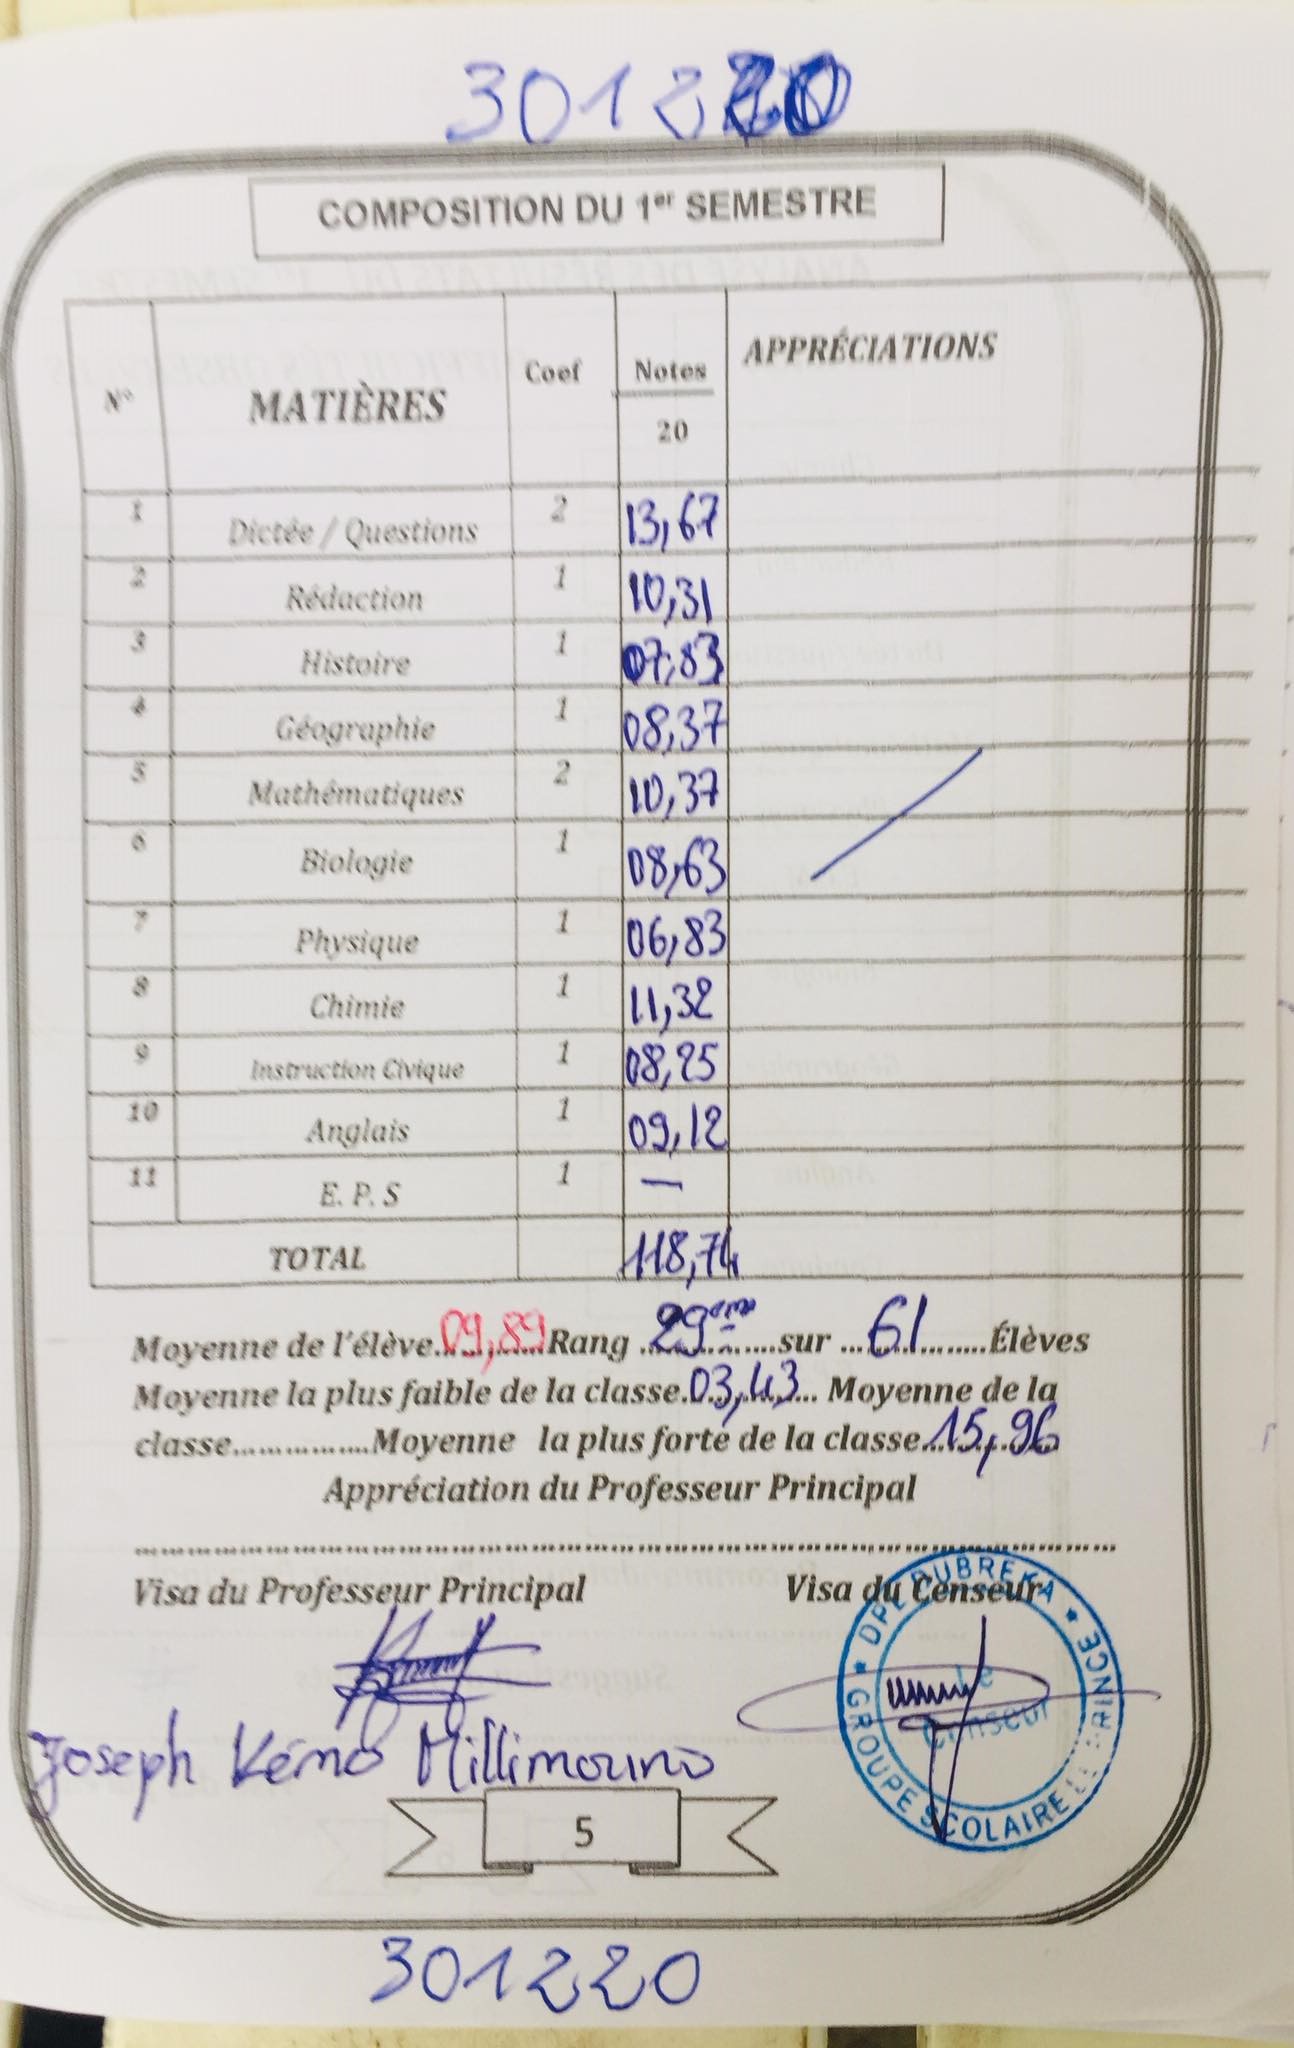 301220
COMPOSITION DU 1er SEMESTRE
N° MATIÈRES Coef Notes APPRÉCIATIONS
20
1 Dictée / Questions 2 13,67
2 Rédaction 1 10,31
3 Histoire 1 07,83
4 Géographie 1 08,37
5 Mathématiques 2 10,37
6 Biologie 1 08,63
7 Physique 1 06,83
8 Chimie 1 11,32
9 Instruction Civique 1 08,25
10 Anglais 1 09,12
11 E. P. S 1 —
TOTAL 118,74
Moyenne de l'élève 09,89 Rang 29ème sur 61 Élèves
Moyenne la plus faible de la classe 03,43 Moyenne de la
classe……………Moyenne la plus forte de la classe 15,96
Appréciation du Professeur Principal
Visa du Professeur Principal Visa du Censeur
DPE DUBREKA
GROUPE SCOLAIRE LE PRINCE
Le Censeur
Joseph Kémo Millimouno
5
301220